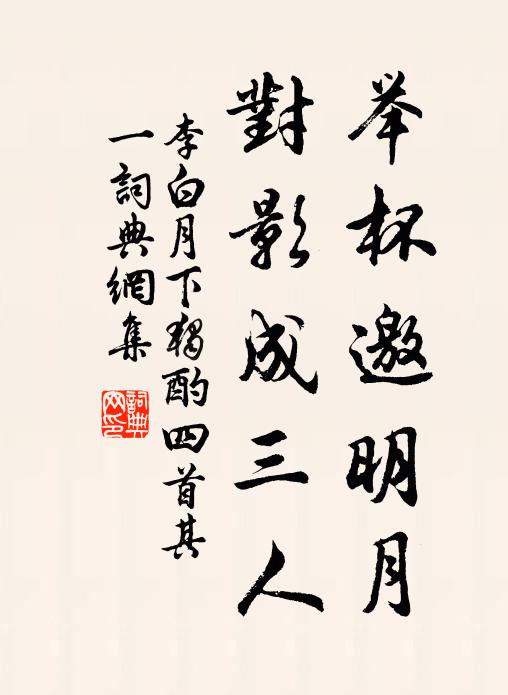 举杯邀明月
對影成三人
李白月下独酌四首其
一詞典網集
詞典
网印